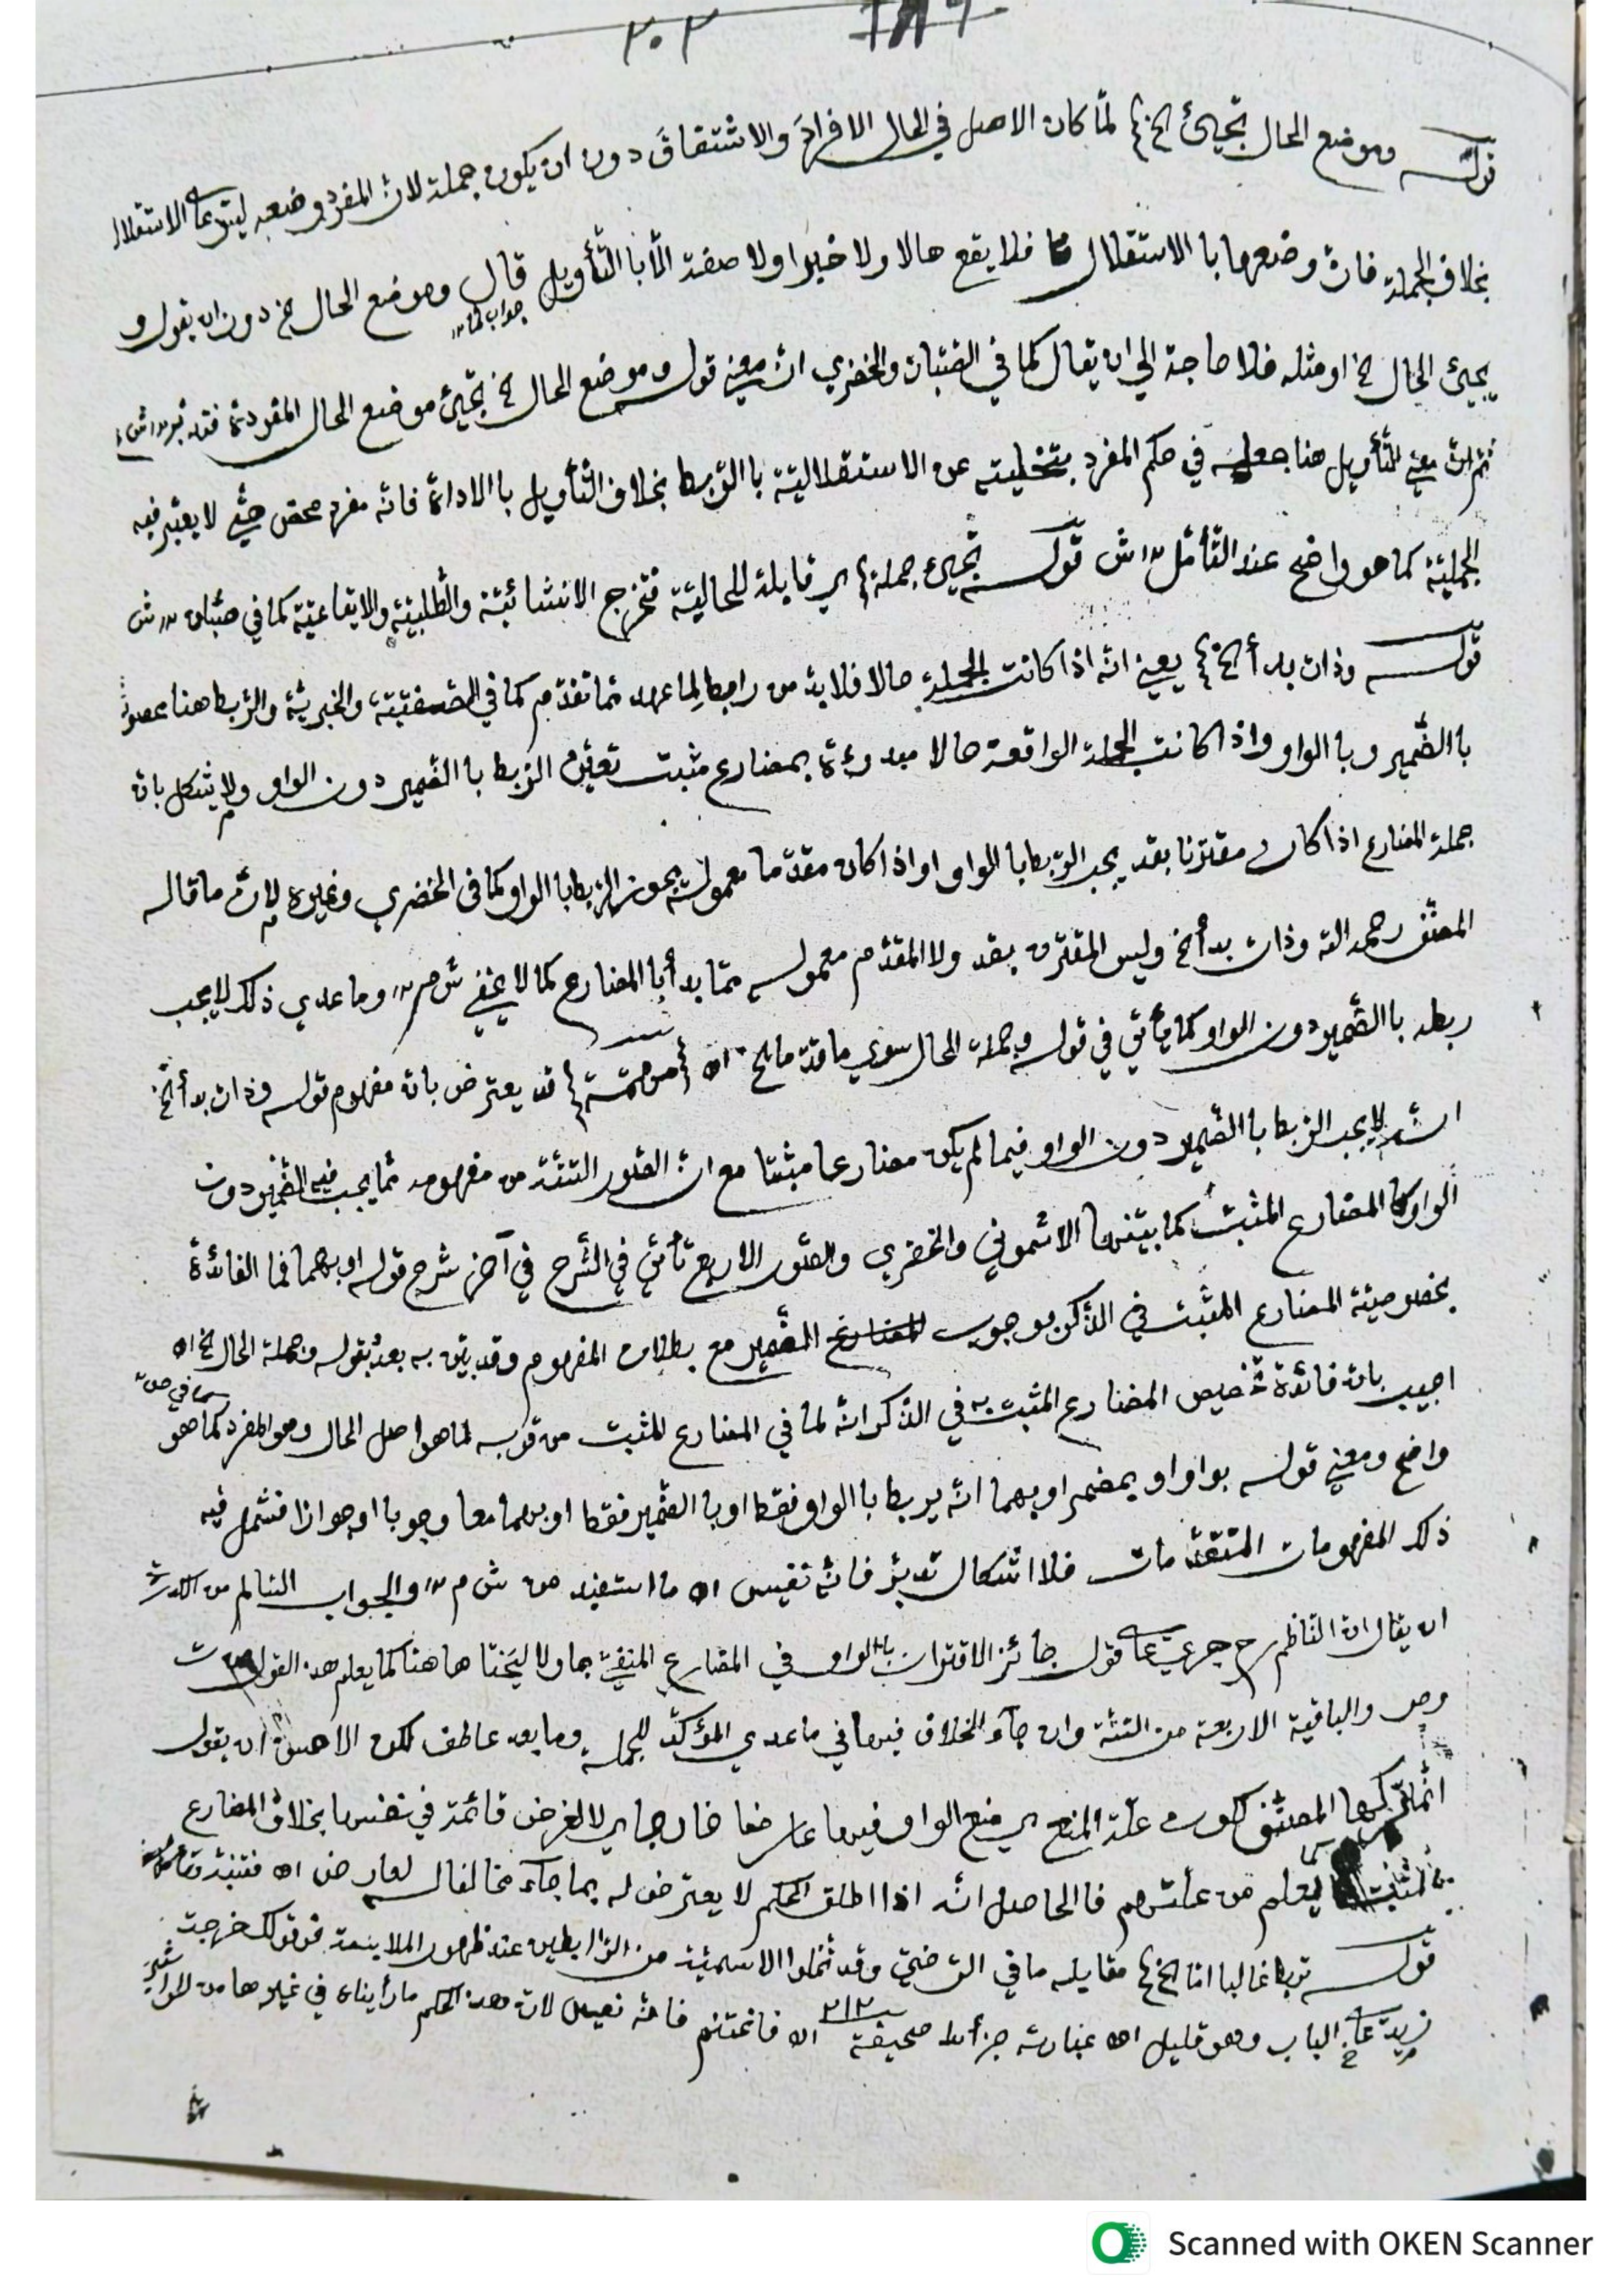 ٣٠٢
قوله وموضع الحال تجيئ الخ} لمّا كان الاصل في الحال الافرادَ والاشتقاقَ دون ان يكون جملة لانّ المفرد وضعه ليتوعا الاستقلال
بخلاف الجملة فانّ وضعها با الاستقلال فلا يقع حالا ولا خبرا ولا صفة الّا با التّأويل قال وموضع الحال الخ دون ان يقول و
جواب لمّا
يجيئ الحال الخ او مثله فلا حاجة الي ان يقال كما في الصّبّان والخضري انّ معني قوله وموضع الحال الخ تجيئ موضع الحال المفردة فتدبّر
ثم انّ معني التّأويل هنا جعله في حكم المفرد بتخليته عن الاستقلاليّة با الرّبط بخلاف التّأويل با الاداة فانّه مفرد محض حتّي لا يعتبر فيه
الجمليّة كما هو واضح عند التّأمّل ش قوله تجيئ جملة} اي قابلة للحاليّة فتخرج الانشائيّة والطّلبيّة والايقاعيّة كما في صبّان ش
قوله وذات بدأ الخ} يعني انّه اذا كانت الجملة حالا فلا بدّ من رابط لما عهد ممّا تقدّم كما في الصّفتيّة والخبريّة والرّبط هنا يحصل
با الضّمير وبا الواو واذا كانت الجملة الواقعة حالا مبدوءة بمضارع مثبت تعيّن الرّبط با الضّمير دون الواو ولا يشكل بانّ
جملة المضارع اذا كان مقترنا بقد يجب الرّبط با الواو او اذا كان مقدّما معموله يجوز الرّبط با الواو كما في الخضري وغيره لانّ ما قاله
المصنّف رحمه الله وذات بدأ الخ وليس المقترن بقد ولا المقدّم معموله ممّا بدأ با المضارع كما لا يخفي ش م وما عدي ذلك لا يجب
ربطه با الضّمير دون الواو كما يأتي في قوله وجملة الحال سوي ما قدّما الخ اه {من مّتة} قد يعترض بانّ مفهوم قوله وذات بدأ الخ
انّه لا يجب الرّبط با الضّمير دون الواو فيما لم يكن مضارعا مثبتا مع انّ الصّور السّتّة من مفهومه ممّا يجب فيه الضّمير دون
الواو كا المضارع المثبت كما بيّنها الاشموني والخضري والصّور الاربع تأتي في الشّرح في آخر شرح قوله او بهما فما الفائدة
بخصوصيّة المضارع المثبت في الذّكر بوجوب الضّمير مع بطلان المفهوم وقد بيّن به بعد بقوله وجملة الحال الخ اه
اجيب بانّ فائدة تخصيص المضارع المثبت في الذّكر انّه لما في المضارع المثبت من قربه لما هو اصل الحال وهو المفرد كما هو
كما في ص
واضح ومعني قوله بواو او بمضمر او بهما انّه يربط با الواو فقط او با الضّمير فقط او بهما معا وجوبا او جوازا فشمل فيه
ذلك المفهومات المتقدّمات فلا اشكال تدبّر فانّه نفيس اه ما استفيد من ش م والجواب السّالم من
ان يقال انّ النّاظم رح جري علي قول جائز الاقتران با الواو في المضارع المنفيّ بما ولا كما يعلم هذا القول
وص والباقية الاربعة من السّتّة وان جآء الخلاف فيها في ما عدي المؤكّد للجملة وما بعد عاطف لكن الاحسن ان يقول
انّما تركها المصنّف لكون علّة المنع اي منع الواو فيها عارضا خارجا اي لا لغرض قائمة في نفسها بخلاف المضارع
المثبت يعلم من علّتهم فا الحاصل انّه اذا اطلق الحكم لا يعترض له بما جآء مخالفا له لعارض اه فتنبّه
قوله تربط غالبا امّا الخ} مقابله ما في التّرضيّ وقد تخلوا الاسميّة من الرّابطين عند ظهور الملابسة نحو قولك خرجت
زيد علي الباب وهو قليل اه عبارته جزأه صحيفة ٢١٢ اه فاغتنم فانّه نفيس لانّ هذا الحكم ما رأيناه في غيرها من
Scanned with OKEN Scanner